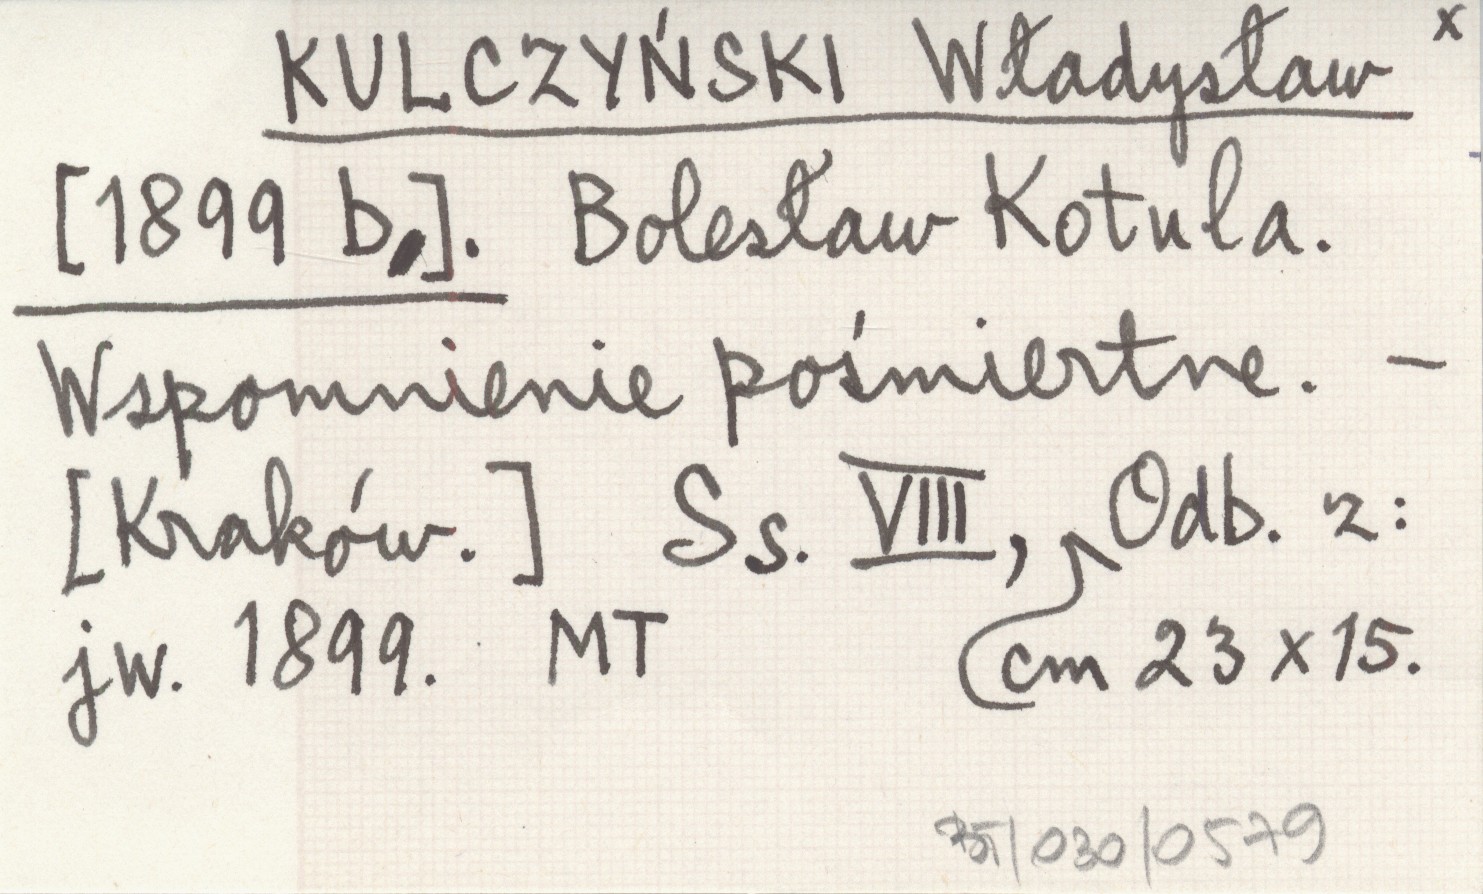 KULCZYŃSKI Władysław x
[1899 b.]. Bolesław Kotula.
Wspomnienie pośmiertne. —
[Kraków.] Ss. VIII, Odb. z:
jw. 1899. MT cm 23 x 15.
/030/0579